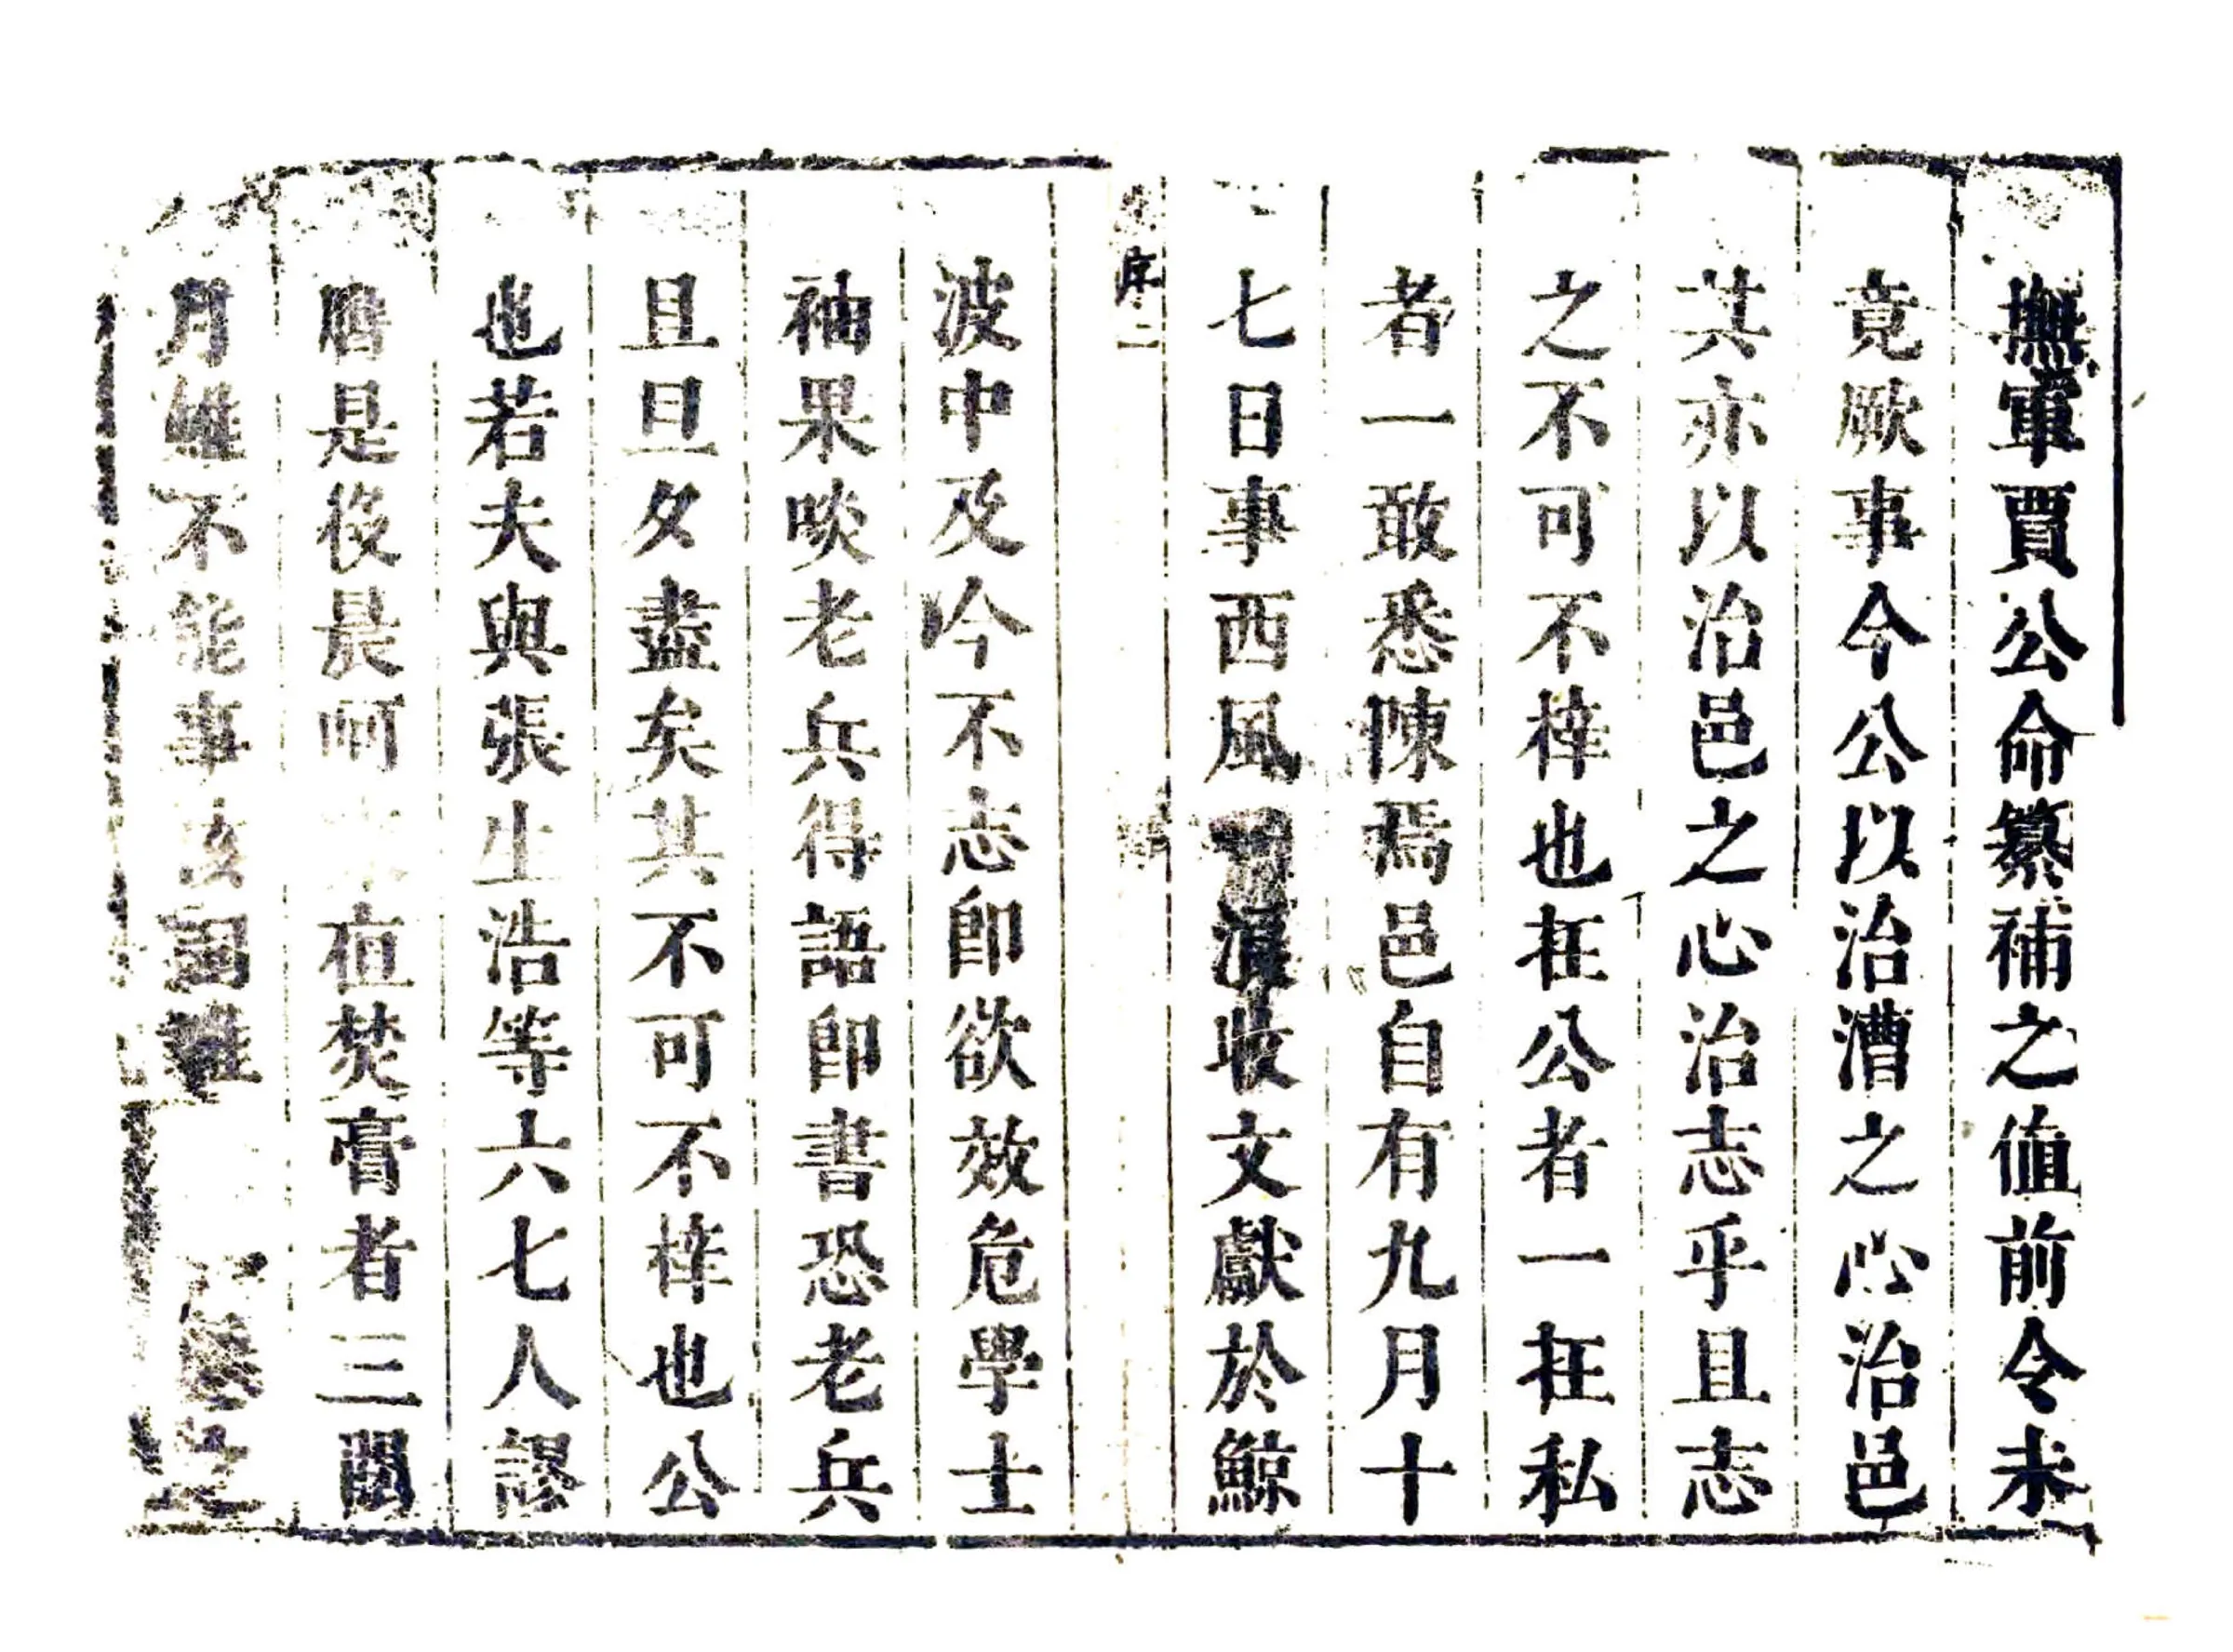 撫軍賈公命纂補之値前令未
竟厥事今公以治漕之心治邑
其亦以治邑之心治志乎且志
之不可不梓也在公者一在私
者一敢悉陳焉邑自有九月十
七日事西風收文獻於鯨
序二
波中及今不志卽欲效危學士
袖果啖老兵得語卽書恐老兵
且旦夕盡矣其不可不梓也公
也若夫與張生浩等六七人謬
膺是役晨呵夜焚膏者三閱
月雖不能事該詞雅